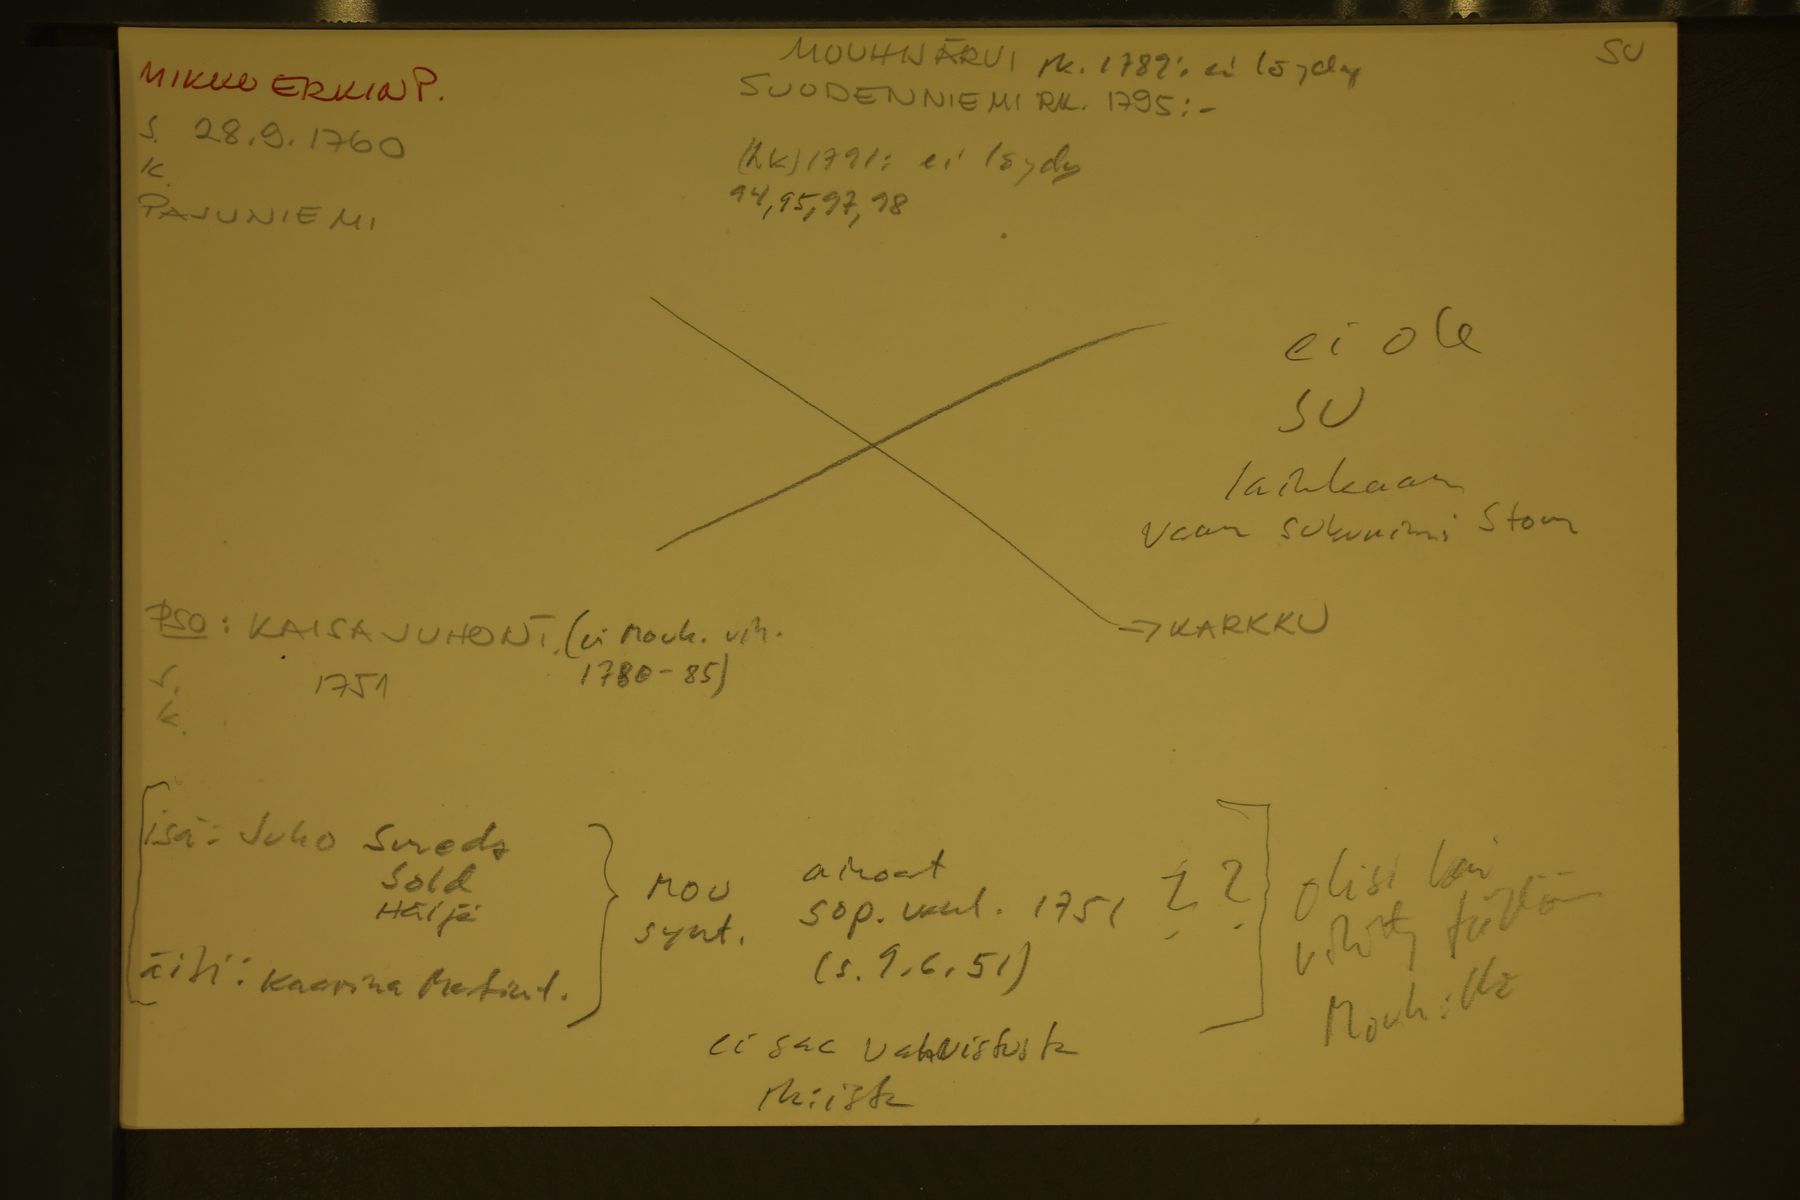 MIKKO ERKINP.
S. 28.9.1760
K.
PAJUNIEMI
MOUHIJÄRVI rk. 1789: ei löydy
SUODENNIEMI RK. 1795:-
(hk) 1791: ei löydy
94, 95, 97, 98
SU
ei ole
SU
lainkaan
vaan sukunimi Stom
→ KARKKU
PSO: KAISA JUHONT. (ei Mouh. vih.
1780-85)
S. 1751
K.
isä: Juho
Sold
Häijä
äiti: Kaarina Matint.
MOU
synt.
ainoat
sop. vanh. 1751 ??
(s. 9.6.51)
ei saa vahvistusta
rk:ista
olisi
vihitty
Mouh: